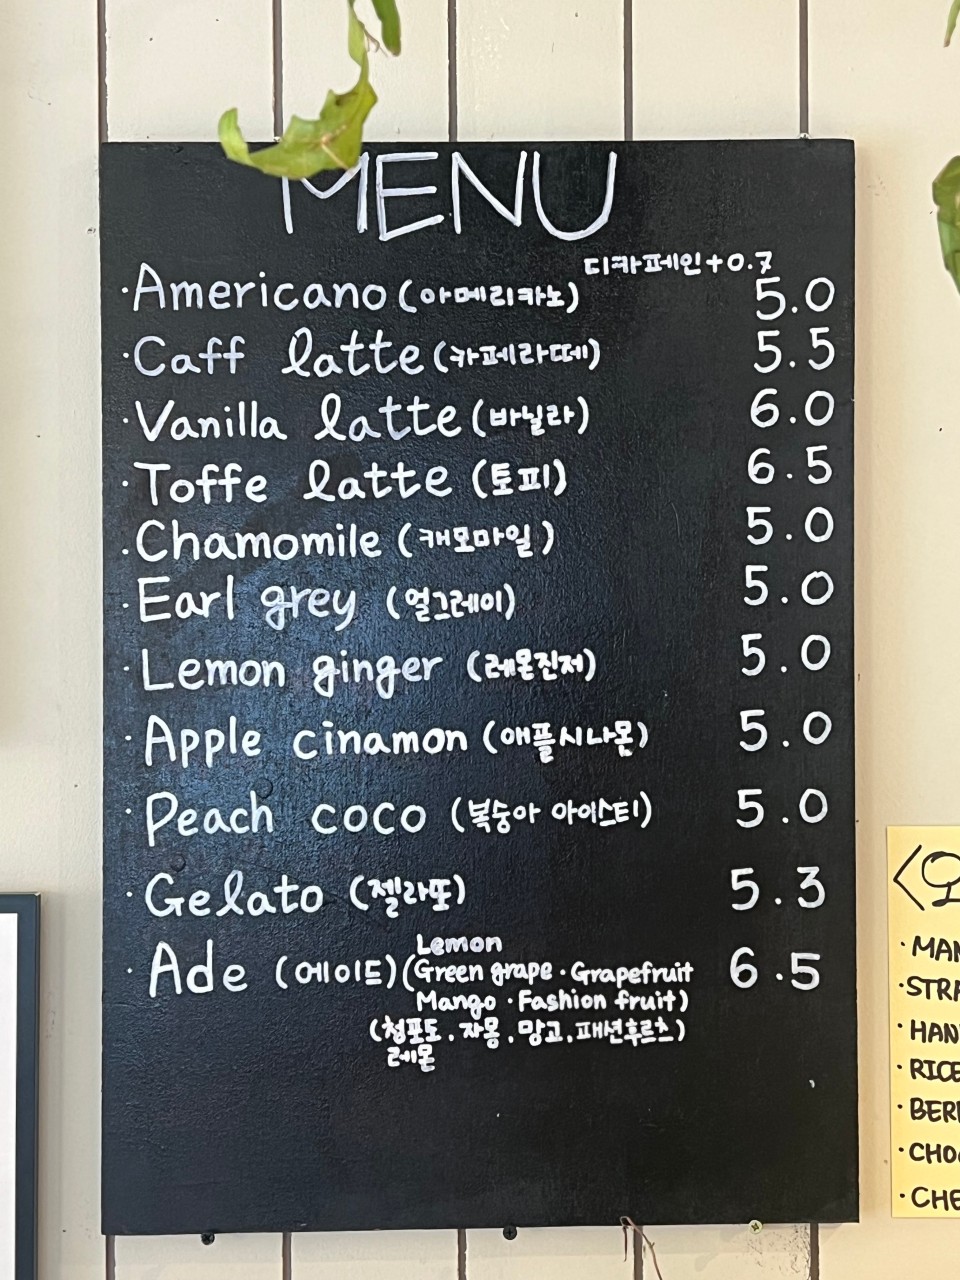 MENU
디카페인+0.7
·Americano (아메리카노) 5.0
·Caff latte (카페라떼) 5.5
·Vanilla latte (바닐라) 6.0
·Toffe latte (토피) 6.5
·Chamomile (캐모마일) 5.0
·Earl grey (얼그레이) 5.0
·Lemon ginger (레몬진저) 5.0
·Apple cinamon (애플시나몬) 5.0
·Peach coco (복숭아 아이스티) 5.0
·Gelato (젤라또) 5.3
Lemon
·Ade (에이드) (Green grape · Grapefruit 6.5
Mango · Fashion fruit)
(청포도, 자몽, 망고, 패션후르츠)
레몬
·MAN
·STRA
·HAN
·RICE
·BER
·CHO
·CHE